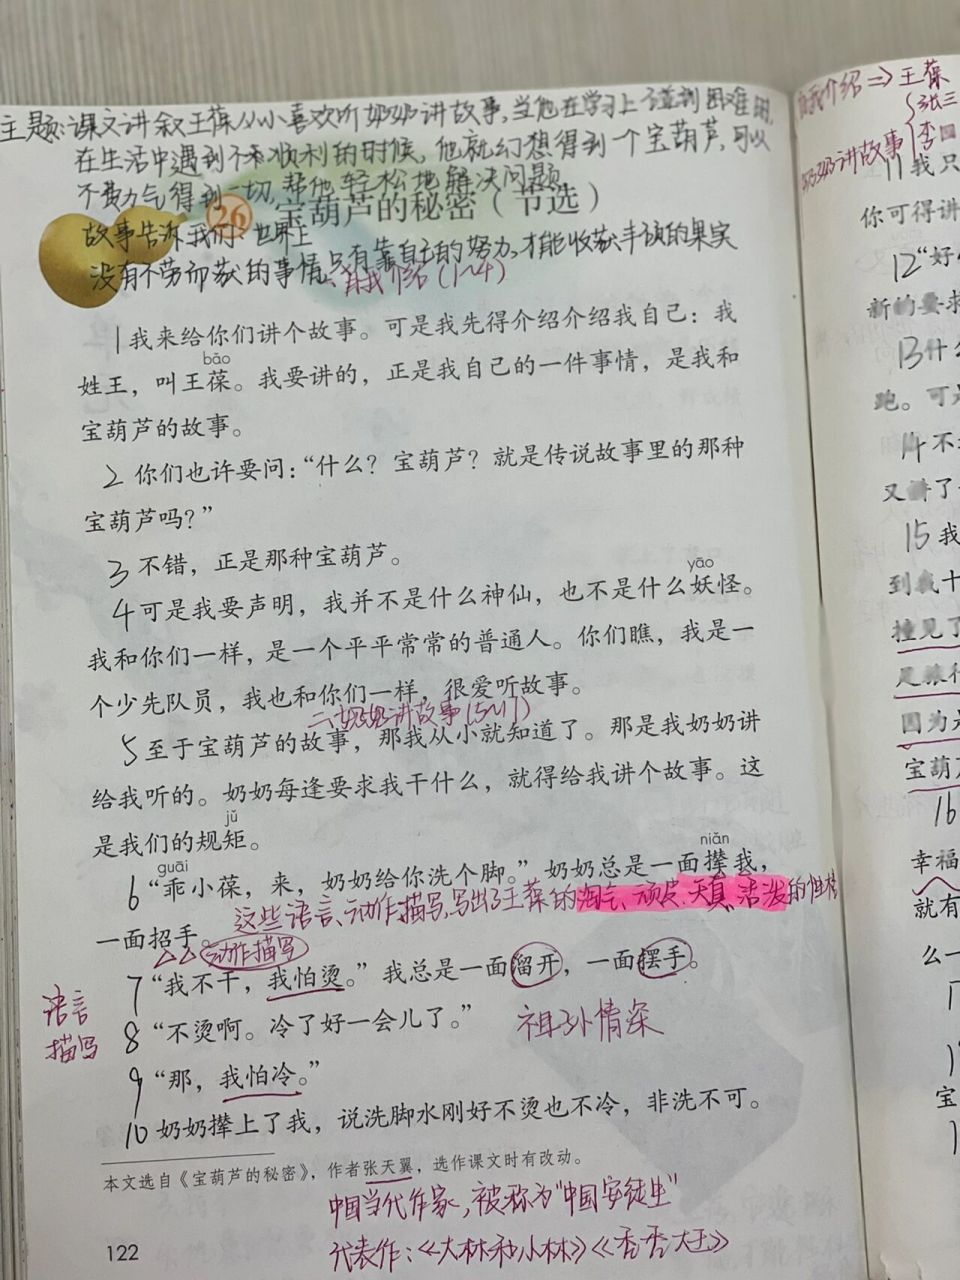 主题:课文讲叙王葆从小喜欢听奶奶讲故事,当他在学习上遇到困难时,
在生活中遇到不顺利的时候,他就幻想得到一个宝葫芦,可以
不费力气得到一切,帮他轻松地解决问题
26 宝葫芦的秘密(节选)
故事告诉我们:世界上
没有不劳而获的事情,只有靠自己的努力,才能收获丰硕的果实
一、自我介绍(1~4)
1我来给你们讲个故事。可是我先得介绍介绍我自己:我
bǎo
姓王,叫王葆。我要讲的,正是我自己的一件事情,是我和
宝葫芦的故事。
2 你们也许要问:“什么?宝葫芦?就是传说故事里的那种
宝葫芦吗?”
3 不错,正是那种宝葫芦。
yāo
4可是我要声明,我并不是什么神仙,也不是什么妖怪。
我和你们一样,是一个平平常常的普通人。你们瞧,我是一
个少先队员,我也和你们一样,很爱听故事。
二、奶奶讲故事(5~17)
5至于宝葫芦的故事,那我从小就知道了。那是我奶奶讲
给我听的。奶奶每逢要求我干什么,就得给我讲个故事。这
jǔ
是我们的规矩。
guāi niǎn
6“乖小葆,来,奶奶给你洗个脚。”奶奶总是一面撵我,
这些语言、动作描写,写出了王葆的淘气、顽皮、天真、活泼的性格
一面招手。
动作描写
7“我不干,我怕烫。”我总是一面溜开,一面摆手。
语言
描写
8“不烫啊。冷了好一会儿了。”
祖孙情深
9“那,我怕冷。”
10奶奶撵上了我,说洗脚水刚好不烫也不冷,非洗不可。
本文选自《宝葫芦的秘密》,作者张天翼,选作课文时有改动。
中国当代作家,被称为“中国安徒生”
代表作:《大林和小林》《秃秃大王》
122
自我介绍⇒王葆
奶奶讲故事
张三
李四
11我只
你可得讲
12“好
新的要求
13什么
跑。可是
14不
又讲了
15我
到我十
撞见了
足旅行
因为
宝葫芦
16
幸福
就有
么一
宝